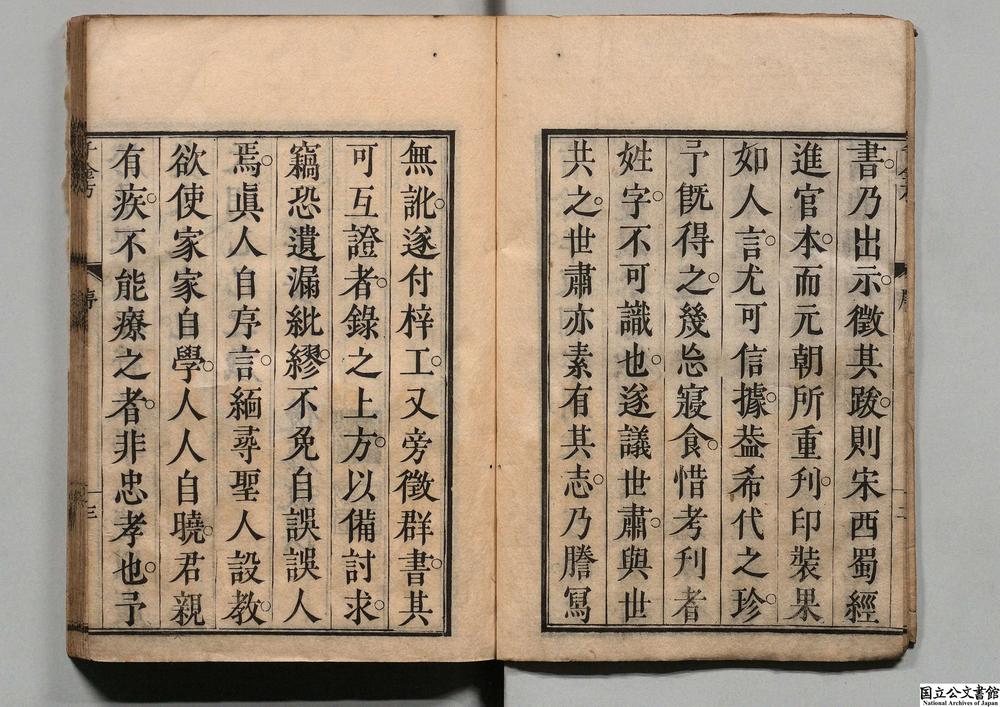 書。乃出示。徵其跋。則宋西蜀經
進官本。而元朝所重刋。印裝果
如人言。尤可信據。葢希代之珍。
予旣得之。幾忘寢食。惜考刋者
姓字。不可識也。遂議世肅。與世
共之。世肅亦素有其志。乃謄冩
無訛。遂付梓工。又旁徵群書。其
可互證者。錄之上方。以備討求。
竊恐遺漏紕繆。不免自誤誤人
焉。眞人自序言。緬尋聖人設教。
欲使家家自學。人人自曉。君親
有疾。不能療之者。非忠孝也。予
千金方
序
二
千金方
序
三
国立公文書館
National Archives of Japan